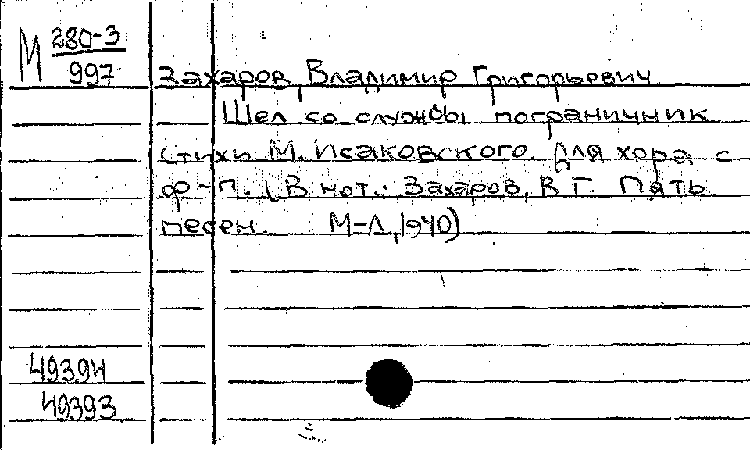 М 280-3
997
Захаров, Владимир Григорьевич
Шел со службы пограничник
Стихи М. Исаковского. Для хора с
ф-п. (В нот.: Захаров, В Г. Пять
песен. М-Л, 1940)
49394
49393